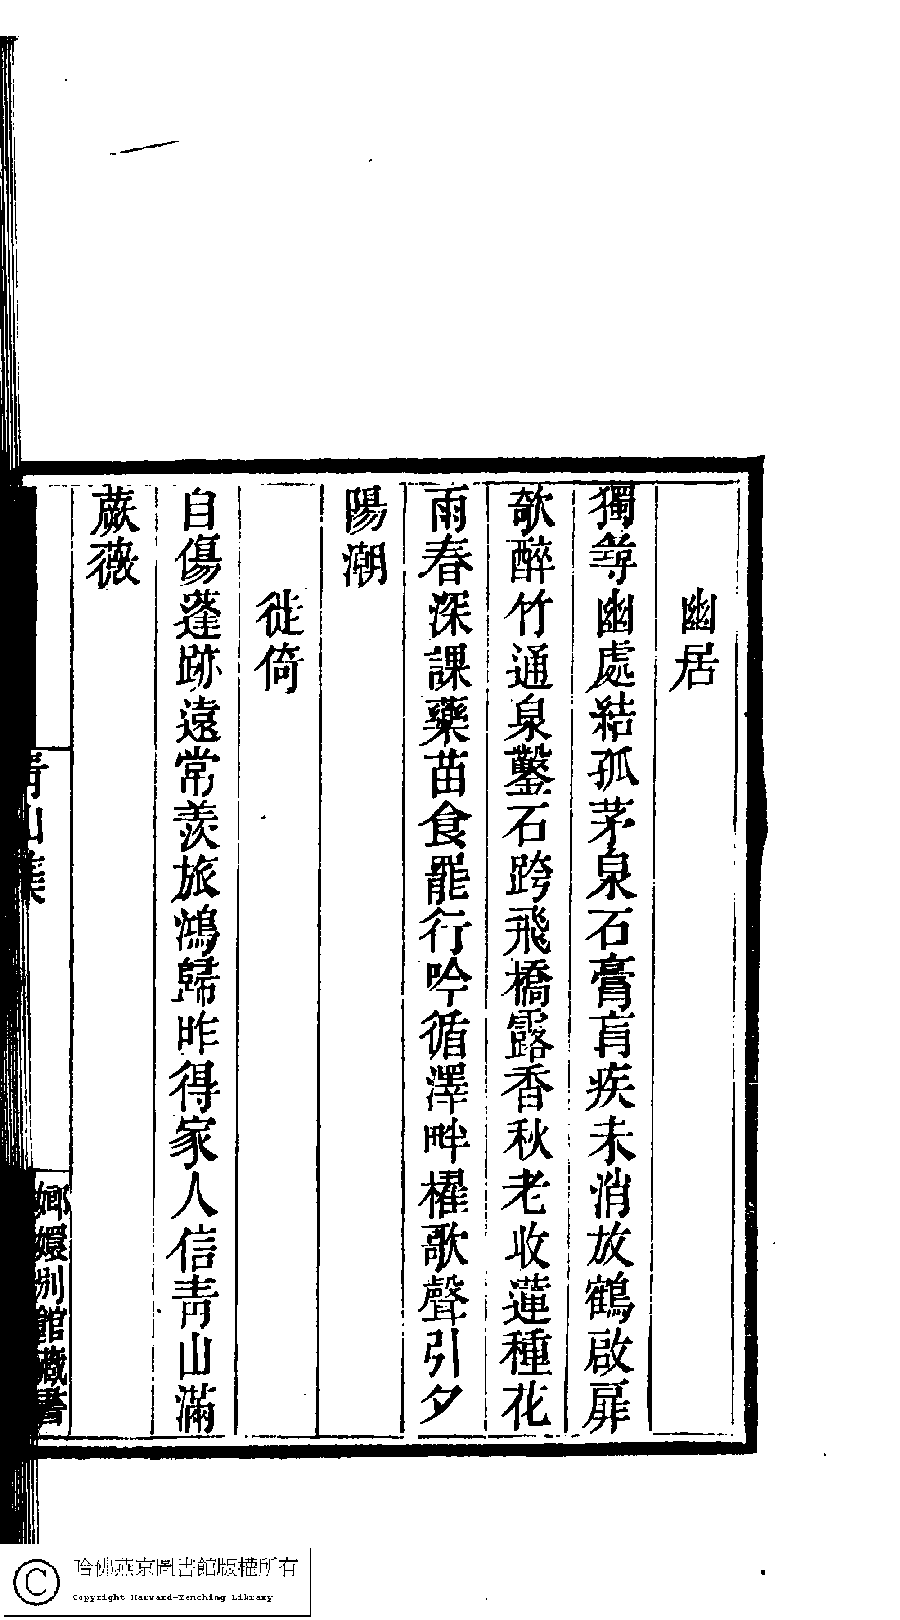 幽居
獨尋幽處結孤茅泉石膏肓疾未消放鶴啟扉
欹醉竹通泉鑿石跨飛橋露香秋老收蓮種花
雨春深課藥苗食罷行吟循澤畔櫂歌聲引夕
陽潮
徙倚
自傷蓬跡遠常羨旅鴻歸昨得家人信靑山滿
蕨薇
靑山集
嫏嬛別館藏書
哈佛燕京圖書館版權所有
Copyright Harvard-Yenching Library